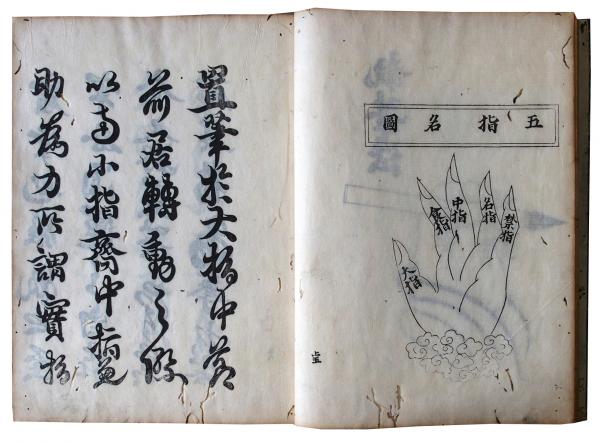 五指名圖
禁指
名指
中指
食指
大指
置筆於大指中節
前居轉動之際
以小指齊中指兼
助為力所謂實指